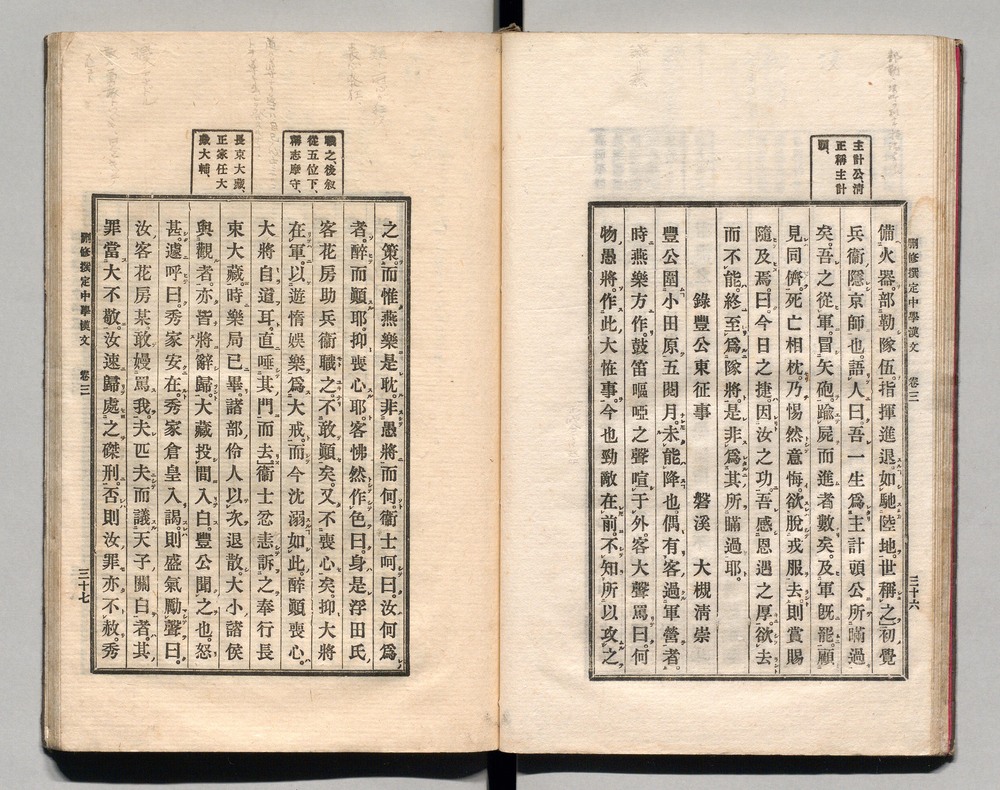 主計公、清
正稱主計
頭、
刪修撰定中學漢文　卷三　三十六
備火器。部勒隊伍。指揮進退。如馳陸地。世稱之。初覺
兵衞隱京師也。語人曰。吾一生爲主計頭公所瞞過
矣。吾之從軍。冒矢砲。踰屍而進者數矣。及軍既罷。顧
見同儕。死亡相枕。乃惕然意悔。欲脫戎服去。則賞賜
隨及焉。曰。今日之捷。因汝之功。吾感恩遇之厚。欲去
而不能。終至爲隊將。是非爲其所瞞過耶。
錄豐公東征事　磐溪　大槻清崇
豐公圍小田原。五閱月。未能降也。偶有客過軍營者。
時燕樂方作。鼓笛嘔啞之聲。喧于外。客大聲罵曰。何
物愚將。作此大恠事。今也勁敵在前。不知所以攻之
職之後敍
從五位下、
稱志摩守、
長束大藏、
正家任大
藏大輔、
之策。而惟燕樂是耽。非愚將而何。衞士呵曰。汝何爲
者。醉而顚耶。抑喪心耶。客怫然作色曰。身是浮田氏
客花房助兵衞職之。不敢顚矣。又不喪心矣。抑大將
在軍。以遊惰娛樂爲大戒。而今沈溺如此。醉顚喪心。
大將自道耳。直唾其門而去。衞士忿恚。訴之奉行長
束大藏。時樂局已畢。諸部伶人。以次退散。大小諸侯
與觀者。亦皆將辭歸。大藏投間入白。豐公聞之也。怒
甚。遽呼曰。秀家安在。秀家倉皇入謁。則盛氣勵聲曰。
汝客花房某。敢嫚罵我。夫匹夫而議天子關白者。其
罪當大不敬。汝速歸。處之磔刑。否則汝罪亦不赦。秀
刪修撰定中學漢文　卷三　三十七